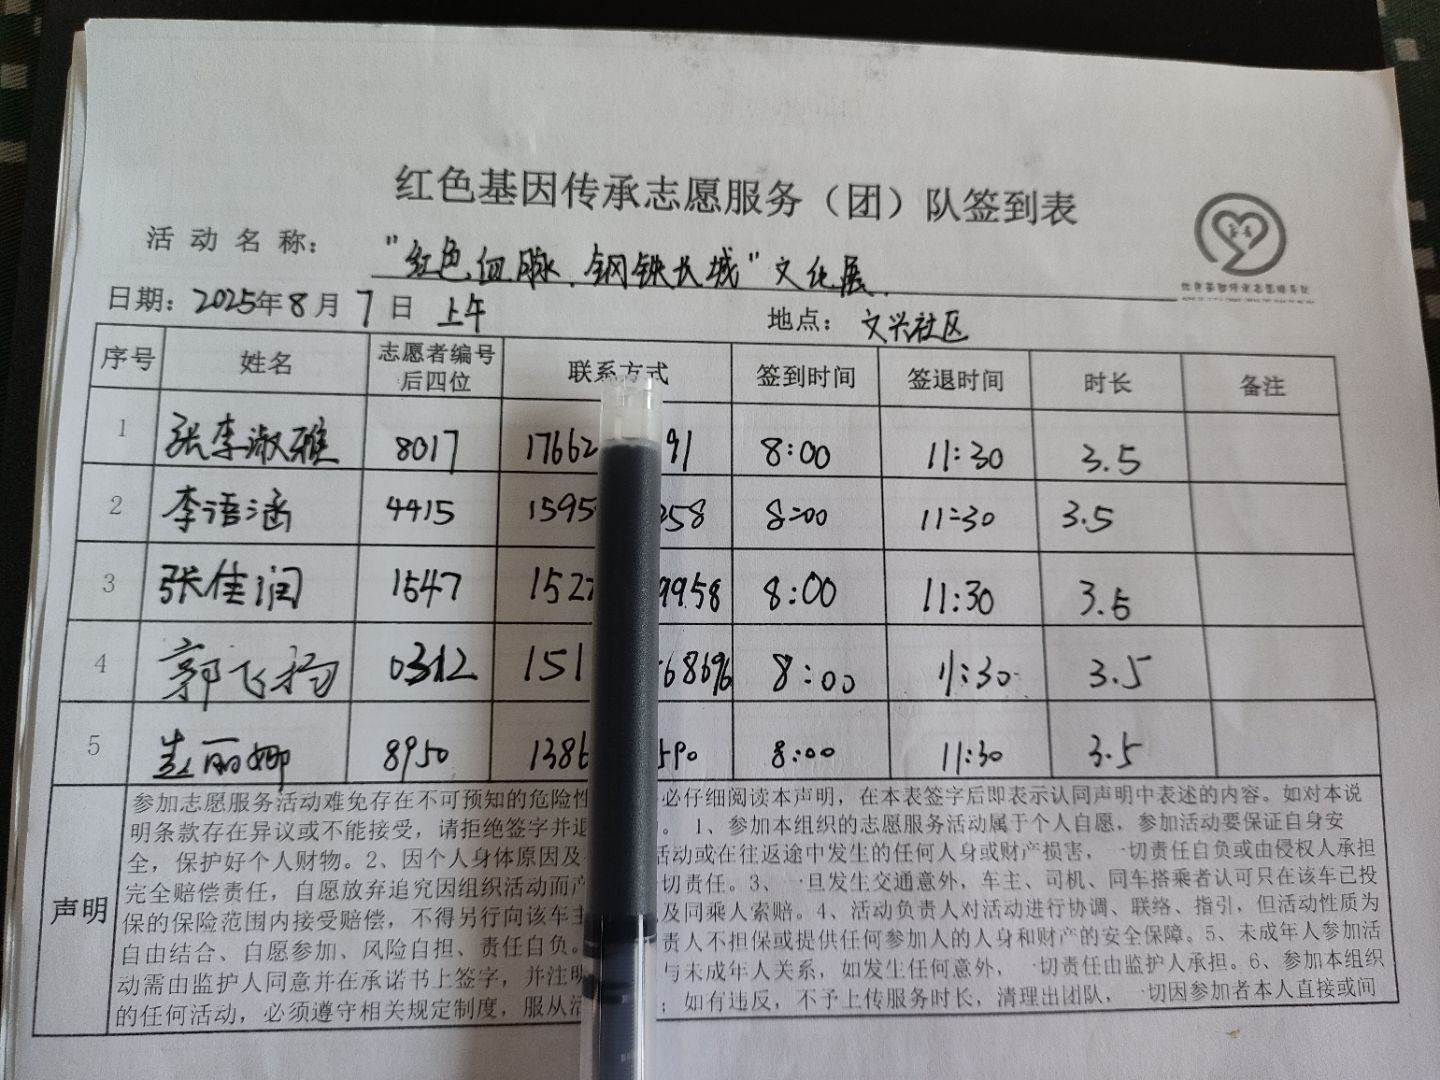 红色基因传承志愿服务（团）队签到表
活动名称： "红色血脉.钢铁长城"文化展.
日期：2025年8月7日 上午 地点： 文兴社区
序号 姓名 志愿者编号后四位 联系方式 签到时间 签退时间 时长 备注
1 张李淑雅 8017 17662 91 8:00 11:30 3.5
2 李语涵 4415 1595 258 8:00 11:30 3.5
3 张佳润 1547 1527 9958 8:00 11:30 3.5
4 郭飞扬 0312 151 68696 8:00 11:30 3.5
5 赵丽娜 8950 1386 590 8:00 11:30 3.5
声明
参加志愿服务活动难免存在不可预知的危险性 必仔细阅读本声明，在本表签字后即表示认同声明中表述的内容。如对本说
明条款存在异议或不能接受，请拒绝签字并退 。 1、参加本组织的志愿服务活动属于个人自愿，参加活动要保证自身安
全，保护好个人财物。2、因个人身体原因及 活动或在往返途中发生的任何人身或财产损害，一切责任自负或由侵权人承担
完全赔偿责任，自愿放弃追究因组织活动而产 切责任。3、一旦发生交通意外，车主、司机、同车搭乘者认可只在该车已投
保的保险范围内接受赔偿，不得另行向该车主 及同乘人索赔。4、活动负责人对活动进行协调、联络、指引，但活动性质为
自由结合、自愿参加、风险自担、责任自负。 责人不担保或提供任何参加人的人身和财产的安全保障。5、未成年人参加活
动需由监护人同意并在承诺书上签字，并注明 与未成年人关系，如发生任何意外，一切责任由监护人承担。6、参加本组织
的任何活动，必须遵守相关规定制度，服从活 ；如有违反，不予上传服务时长，清理出团队，一切因参加者本人直接或间